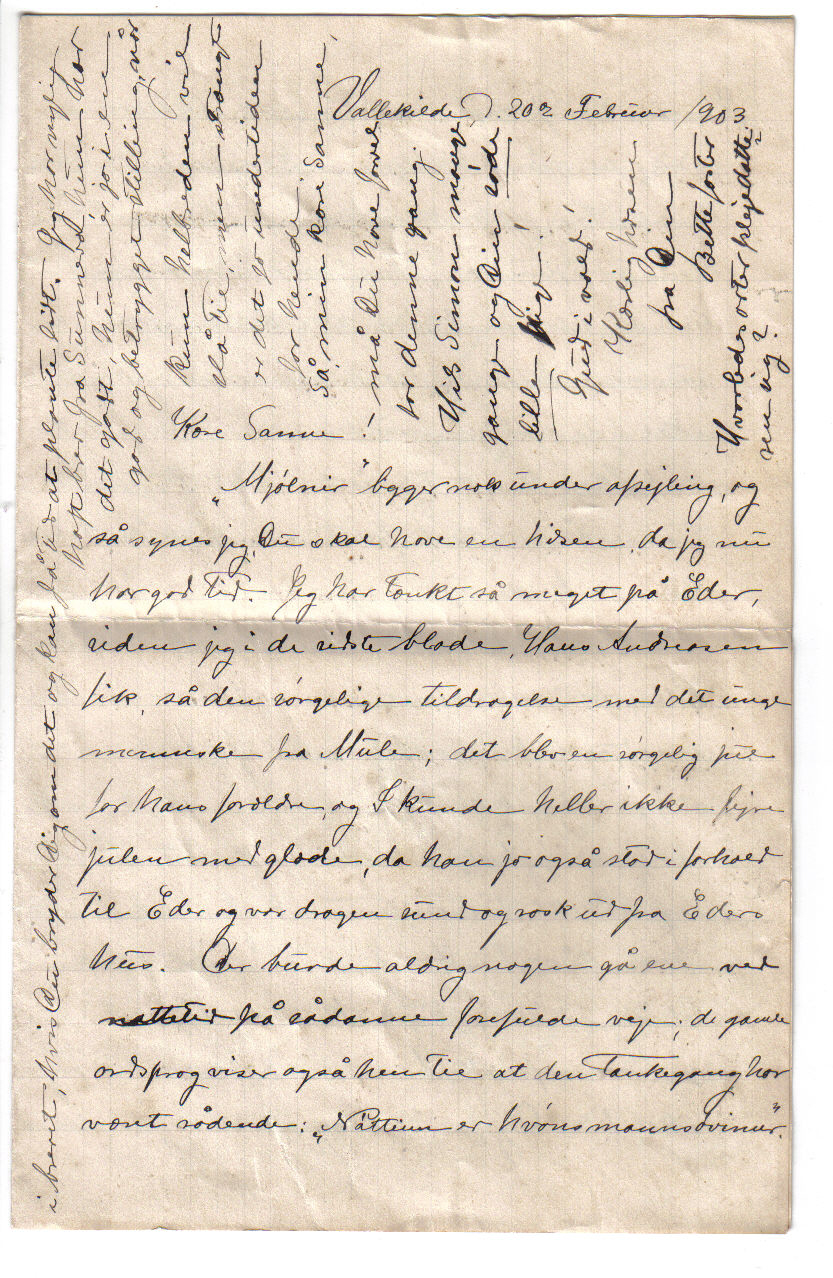 Vallekilde, d. 20de Februar 1903
Kære Sanne!
"Mjølnir" ligger nok under afsejling, og
så synes jeg, Du skal have en hilsen, da jeg nu
har god tid. Jeg har tænkt så meget på Eder,
siden jeg i de sidste blade, Hans Andreasen
fik, så den sørgelige tildragelse med det unge
menneske fra Mule; det blev en sørgelig jul
for hans forældre, og I kunde heller ikke fejre
julen med glæde, da han jo også stod i forhold
til Eder og var dragen sund og rask ud fra Eders
hus. Der burde aldrig nogen gå ene ved
nattetid på sådanne farefulde veje; de gamle
ordsprog viser også hen til at den tankegang har
været rådende: "Náttinn er hvóns manns óvinur".
i brevet, hvis Du bryder Dig om det og kan få tid at plante lidt. Jeg har nylig
haft brev fra Sunneva, hun har
det godt, hun er jo i en
god og betrygget stilling, når
kun helbreden vil
slå til, men strengt
er det jo undertiden
for hende.
Så, min kære Sanne,
må Du have farvel
for denne gang.
Hils Simon mange
gange og Din søde
lille pige!
Gud i vold!
Kærlig hilsen
fra Din
Bettefaster
Hvorledes arter plejedatte-
ren sig?